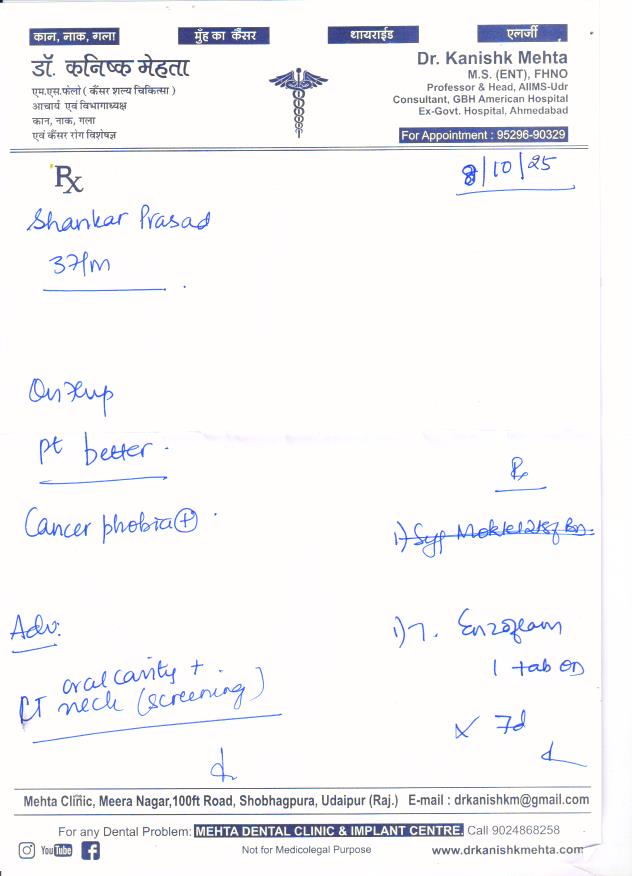 कान, नाक, गला
मुँह का कैंसर
थायराईड
एलर्जी
डॉ. कनिष्क मेहता
एम.एस.फेलो ( कैंसर शल्य चिकित्सा )
आचार्य एवं विभागाध्यक्ष
कान, नाक, गला
एवं कैंसर रोग विशेषज्ञ
Dr. Kanishk Mehta
M.S. (ENT), FHNO
Professor & Head, AIIMS-Udr
Consultant, GBH American Hospital
Ex-Govt. Hospital, Ahmedabad
For Appointment : 95296-90329
Rx
8/10/25
Shankar Prasad
37/m
On
pt better.
Cancer phobia (+)
Adv:
oral cavity +
CT neck (screening)
Rx
1) Syp
1) T. Enzoflam
1 tab OD
x 7d
Mehta Clinic, Meera Nagar,100ft Road, Shobhagpura, Udaipur (Raj.) E-mail : drkanishkm@gmail.com
For any Dental Problem: MEHTA DENTAL CLINIC & IMPLANT CENTRE. Call 9024868258
YouTube
Not for Medicolegal Purpose
www.drkanishkmehta.com